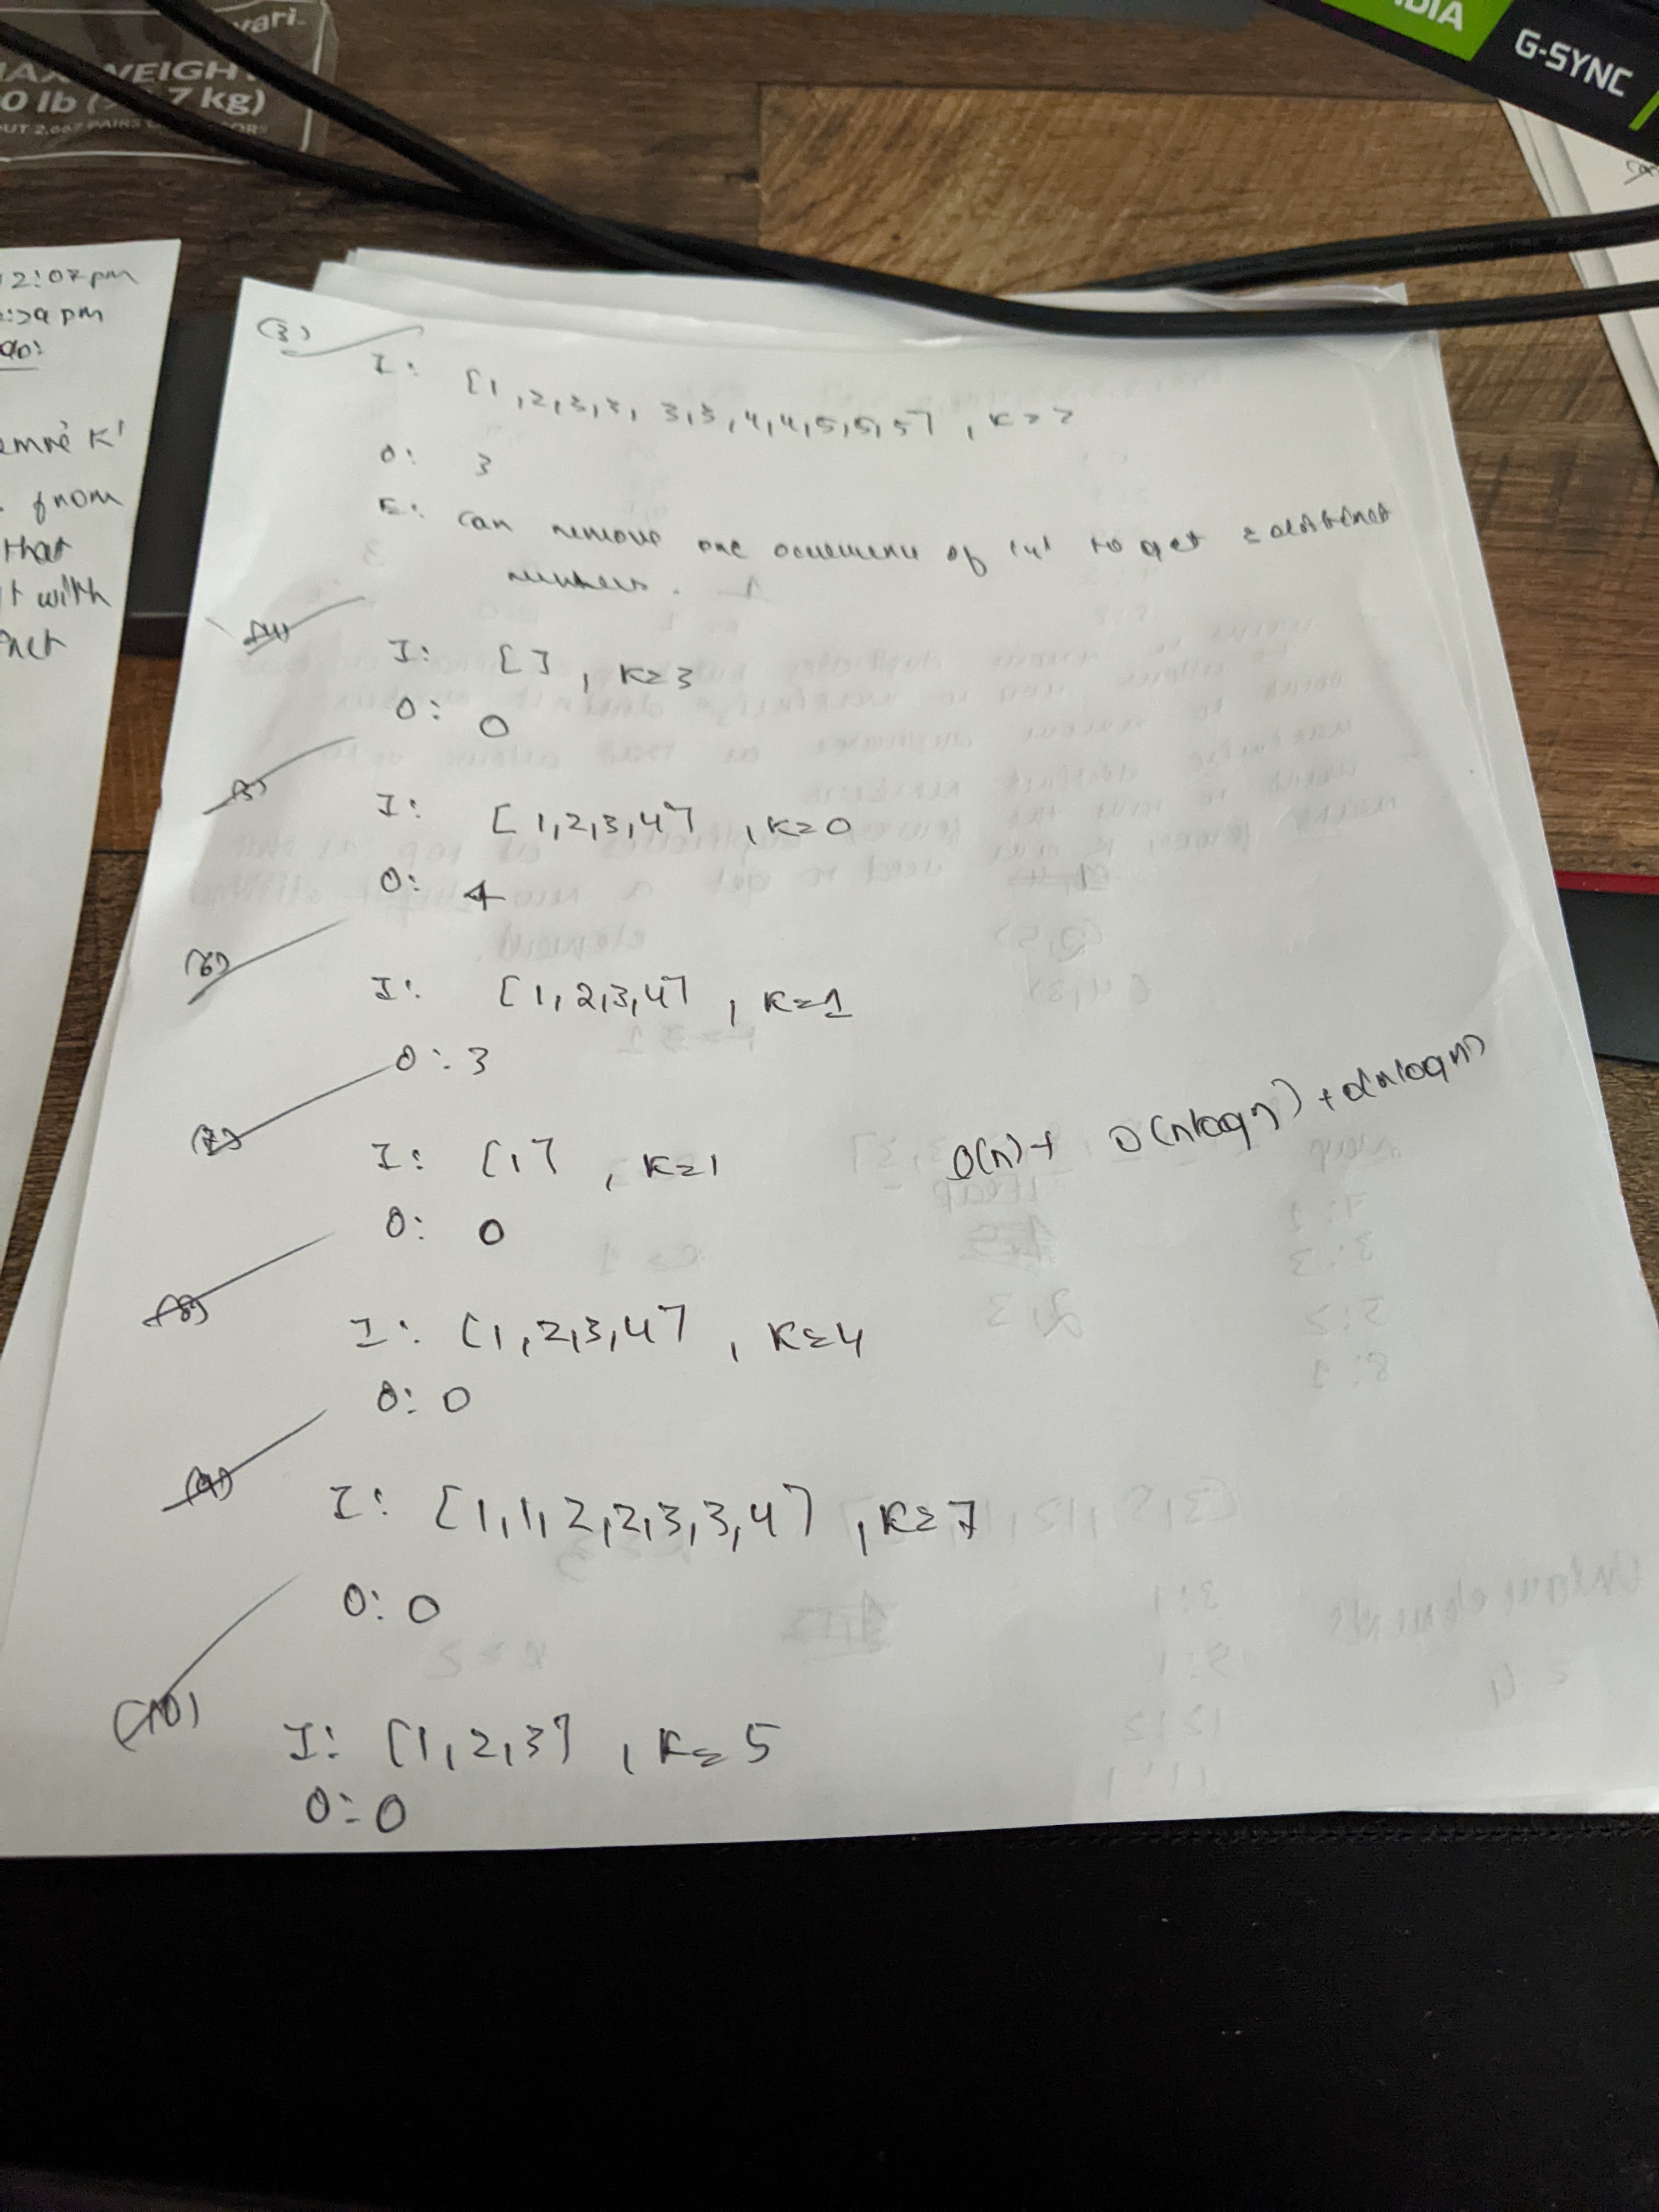 vari-
MAX WEIGH
0 lb ( 7 kg)
DIA
G-SYNC
2:07pm
:29 pm
emove K'
from
that
t with
nct
(3)
I: [1,2,3,3, 3,3,4,4,5,5,5], K=2
O: 3
E: can remove one occurrence of '4' to get 3 distinct
numbers.
(4)
I: [], K=3
O: 0
(5)
I: [1,2,3,4], K=0
O: 4
(6)
I: [1,2,3,4], K=1
O: 3
(7)
I: [1], K=1
O: 0
O(n)+ O(nlogn)+O(nlogn)
(8)
I: [1,2,3,4], K=4
O: 0
(9)
I: [1,1,2,2,3,3,4], K=7
O: 0
(10)
I: [1,2,3], K=5
O: 0